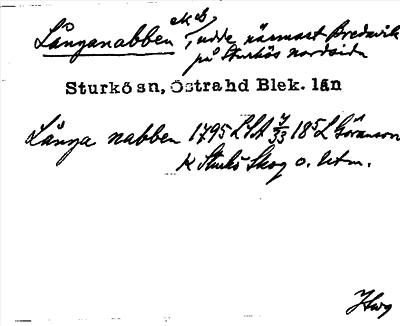 Långanabben ek. bl., udde närmast Bredavik
på Sturkös nordsida
Sturkö sn, Östra hd Blek. län
Långa nabben 1795 LSA 7/33 18⁵ L Göransson
K Sturkö Skog o. Utm.